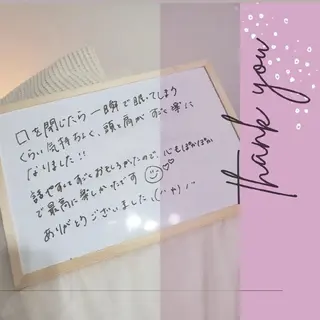 口を閉じたら一瞬で眠ってしまう
くらい気持ちよく、頭と肩がすごく楽に
なりました!!
話もすごくおもしろかったので、心もぽかぽか
で最高に楽しかったです
ありがとうございました
thank you